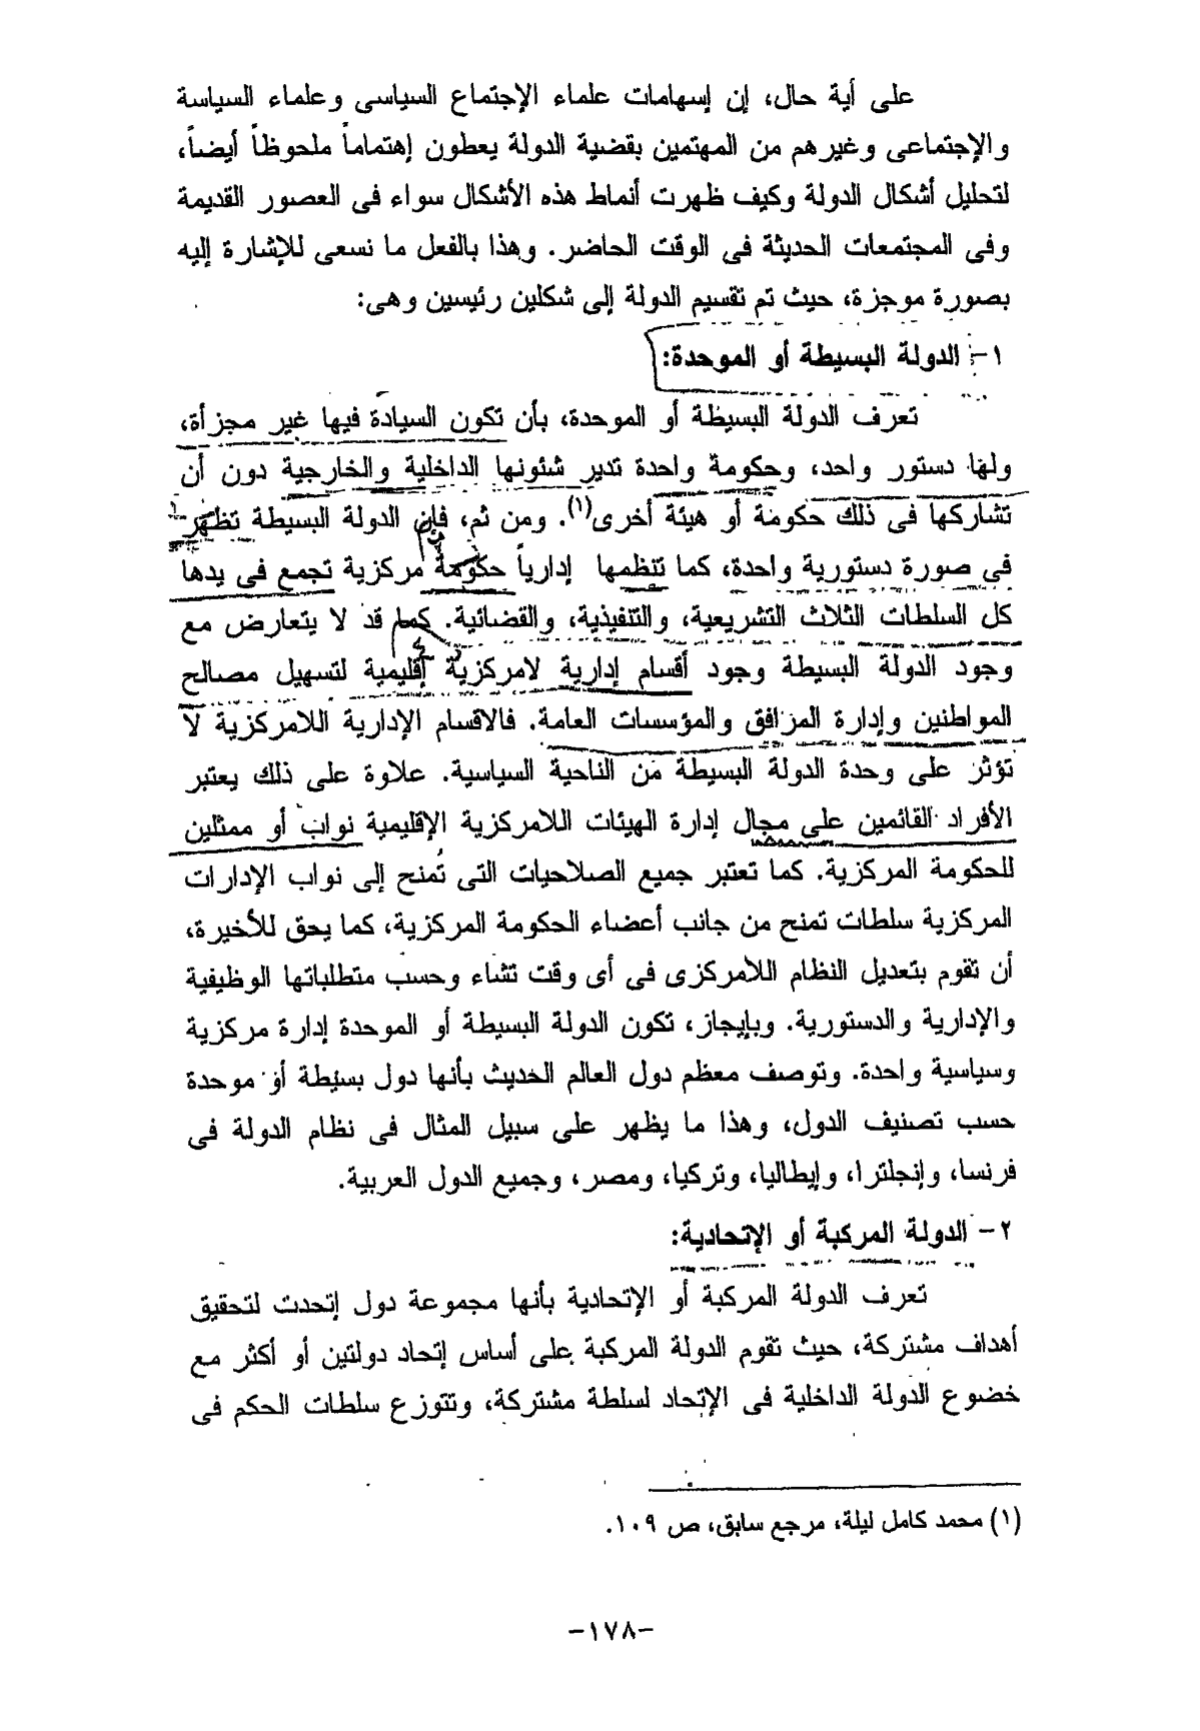 على أية حال، إن إسهامات علماء الإجتماع السياسى وعلماء السياسة
والإجتماعى وغيرهم من المهتمين بقضية الدولة يعطون إهتماماً ملحوظاً أيضاً،
لتحليل أشكال الدولة وكيف ظهرت أنماط هذه الأشكال سواء فى العصور القديمة
وفى المجتمعات الحديثة فى الوقت الحاضر. وهذا بالفعل ما نسعى للإشارة إليه
بصورة موجزة، حيث تم تقسيم الدولة إلى شكلين رئيسين وهى:
١- الدولة البسيطة أو الموحدة:
تعرف الدولة البسيطة أو الموحدة، بأن تكون السيادة فيها غير مجزأة،
ولها دستور واحد، وحكومة واحدة تدير شئونها الداخلية والخارجية دون أن
تشاركها فى ذلك حكومة أو هيئة أخرى(١). ومن ثم، فإن الدولة البسيطة تظهر
فى صورة دستورية واحدة، كما تنظمها إدارياً حكومة مركزية تجمع فى يدها
كل السلطات الثلاث التشريعية، والتنفيذية، والقضائية. كما قد لا يتعارض مع
وجود الدولة البسيطة وجود أقسام إدارية لامركزية إقليمية لتسهيل مصالح
المواطنين وإدارة المرافق والمؤسسات العامة. فالاقسام الإدارية اللامركزية لا
تؤثر على وحدة الدولة البسيطة من الناحية السياسية. علاوة على ذلك يعتبر
الأفراد القائمين على مجال إدارة الهيئات اللامركزية الإقليمية نواب أو ممثلين
للحكومة المركزية. كما تعتبر جميع الصلاحيات التى تُمنح إلى نواب الإدارات
المركزية سلطات تمنح من جانب أعضاء الحكومة المركزية، كما يحق للأخيرة،
أن تقوم بتعديل النظام اللامركزى فى أى وقت تشاء وحسب متطلباتها الوظيفية
والإدارية والدستورية. وبإيجاز، تكون الدولة البسيطة أو الموحدة إدارة مركزية
وسياسية واحدة. وتوصف معظم دول العالم الحديث بأنها دول بسيطة أو موحدة
حسب تصنيف الدول، وهذا ما يظهر على سبيل المثال فى نظام الدولة فى
فرنسا، وإنجلترا، وإيطاليا، وتركيا، ومصر، وجميع الدول العربية.
٢- الدولة المركبة أو الإتحادية:
تعرف الدولة المركبة أو الإتحادية بأنها مجموعة دول إتحدت لتحقيق
أهداف مشتركة، حيث تقوم الدولة المركبة على أساس إتحاد دولتين أو أكثر مع
خضوع الدولة الداخلية فى الإتحاد لسلطة مشتركة، وتتوزع سلطات الحكم فى
(١) محمد كامل ليلة، مرجع سابق، ص ١٠٩.
-١٧٨-